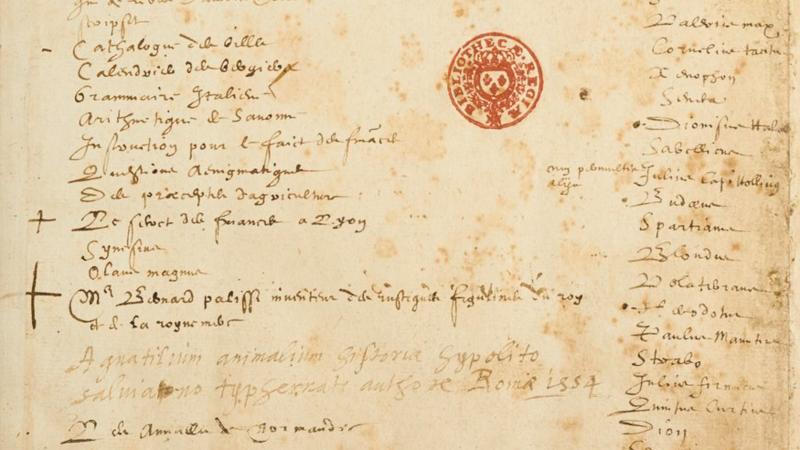 scripsit
Cathalogue des villes
Calendrier des bergiers
Grammaire Italiene
Arithmetique de Sauonne
Instruction pour le faict des finãces
Questions Aenigmatiques
Des preceptes d'agriculture
Le secret des finances a Lyon
Synesius
Olaus magnus
Mᵉ Bernard palissi inventeur des rustiques figulines du roy
et de la royne mere
Aquatilium animalium historia hypolito
salviano typhernate authore Romae 1554
L des Annales de Normandie
BIBLIOTHECÆ REGIÆ
Valerius max
Cornelius tacitus
Xenophon
Seneca
Dionisius Hala
Sabellicus
Julius Capitollinus
Budaeus
Spartianus
Blondus
Volaterranus
Herodotus
Paulus Manutius
Strabo
Julius firmicus
Quintus Curtius
Dion